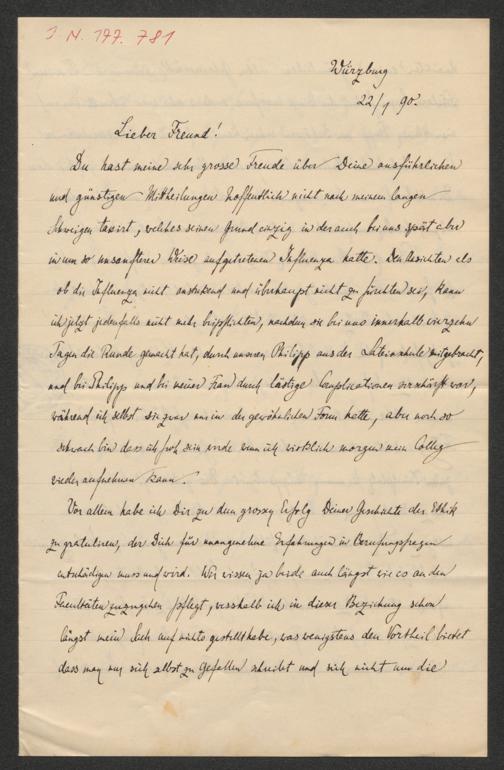 J. N. 177.781
Würzburg
22/1 90.
Lieber Freund!
Du hast meine sehr grosse Freude über Deine ausführlichen
und günstigen Mittheilungen hoffentlich nicht nach meinem langen
Schweigen taxirt, welches seinen Grund einzig in der auch bei uns spät aber
in um so unsanfterer Weise aufgetretenen Influenza hatte. Den Ansichten als
ob die Influenza nicht ansteckend und überhaupt nicht zu fürchten sei, kann
ich jetzt jedenfalls nicht mehr beipflichten, nachdem sie bei uns innerhalb vierzehn
Tagen die Runde gemacht hat, durch unseren Philipp aus der Lateinschule mitgebracht,
und bei Philipp und bei meiner Frau durch lästige Complicationen verschärft war,
während ich selbst sie zwar nur in der gewöhnlichen Form hatte, aber noch so
schwach bin dass ich froh sein werde wenn ich wirklich morgen mein Colleg
wieder aufnehmen kann.
Vor allem habe ich Dir zu dem grossen Erfolg Deiner Geschichte der Ethik
zu gratuliren, der Dich für unangenehme Erfahrungen in Berufungsfragen
entschädigen muss und wird. Wir wissen ja beide auch längst wie es an den
Facultäten zuzugehen pflegt, wesshalb ich in dieser Beziehung schon
längst mein Sach auf nichts gestellt habe, was wenigstens den Vortheil bietet
dass man nur sich selbst zu Gefallen schreibt und sich nicht um die